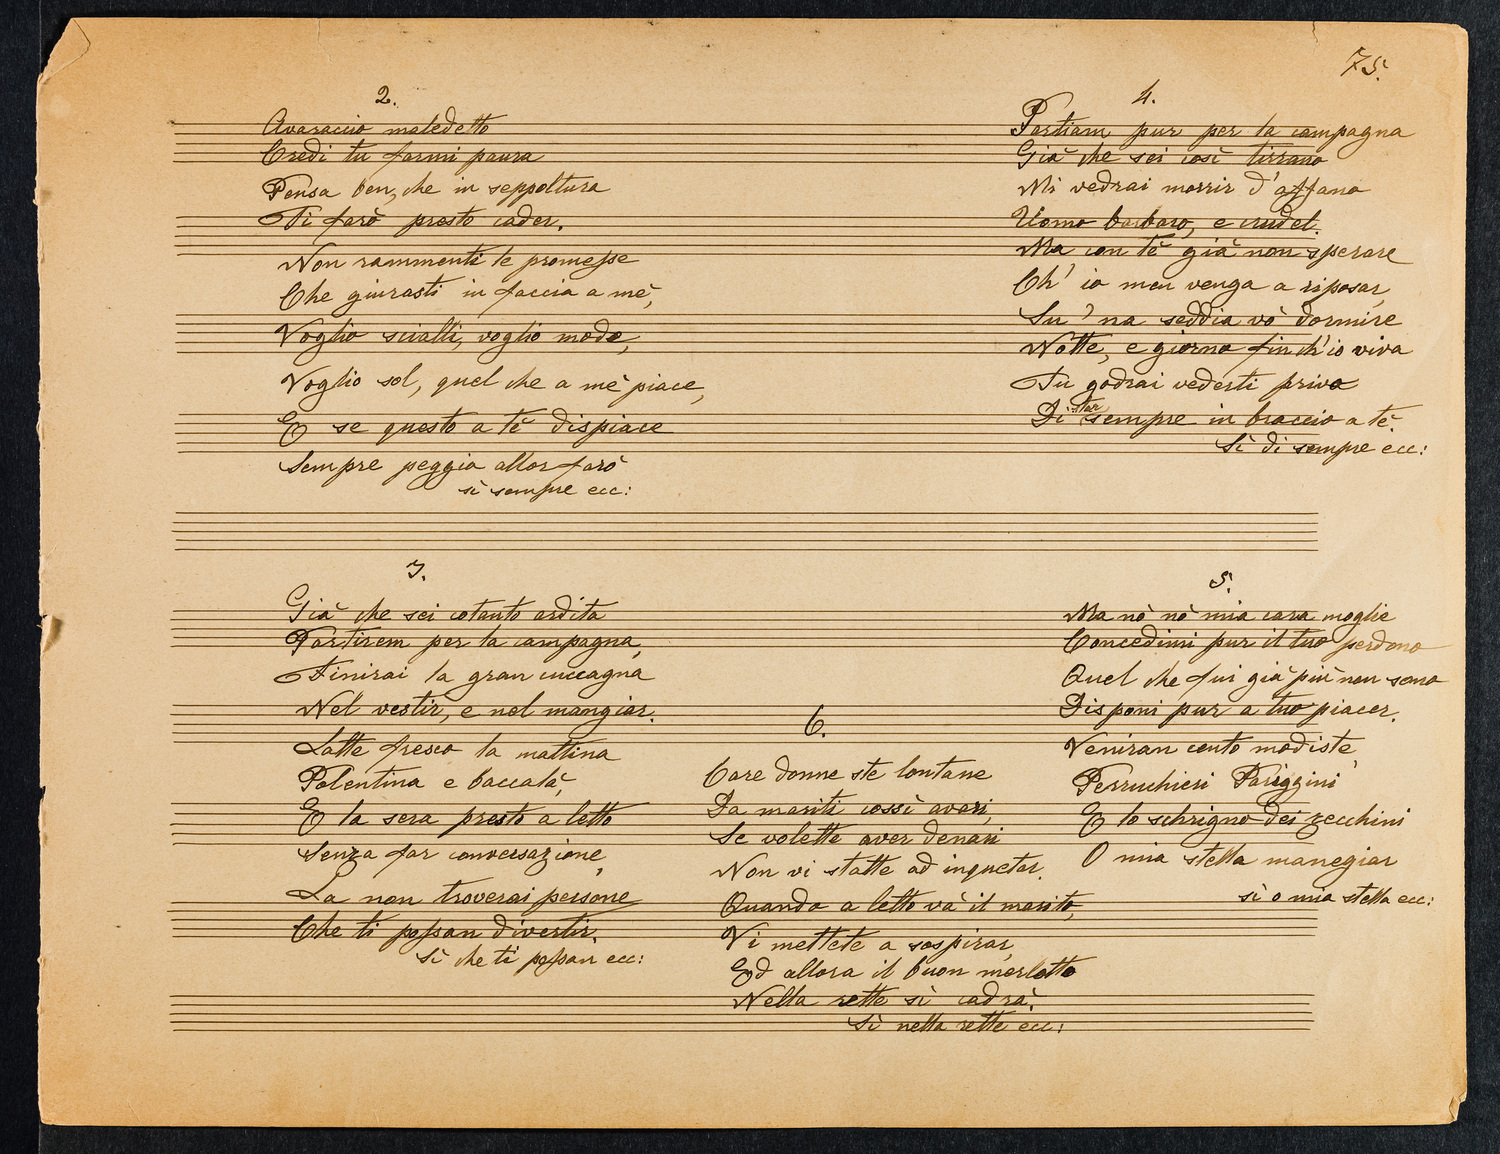 75.
2.
Avaraccio maledetto
Credi tu farmi paura
Pensa ben, che in seppoltura
Ti farò presto cader.
Non rammenti le promesse
Che giurasti in faccia a mè,
Voglio scialli, voglio mode,
Voglio sol, quel che a mè piace,
E se questo a tè dispiace
Sempre peggio allor farò
sì sempre ecc:
3.
Già che sei cotanto ardita
Partirem per la campagna,
Finirai la gran cuccagna
Nel vestir, e nel mangiar.
Latte fresco la mattina
Polentina e baccalà,
E la sera presto a letto
Senza far conversazione,
La non troverai persone
Che ti possan divertir.
Sì che ti possan ecc:
4.
Partiam pur per la campagna
Già che sei così tirrano
Mi vedrai morrir d'affano
Uomo barbaro, e crudel.
Ma con tè già non sperare
Ch' io men venga a riposar,
Su 'na seddia vò dormire
Notte, e giorno fin ch'io viva
Tu godrai vederti privo
Di star sempre in braccio a tè.
Sì di sempre ecc:
5.
Ma nò nò mia cara moglie
Concedimi pur il tuo perdono
Quel che fui già più non sono
Disponi pur a tuo piacer.
Veniran cento modiste,
Perruchieri Pariggini
E lo schrigno dei zecchini
O mia stella manegiar
sì o mia stella ecc:
6.
Care donne ste lontane
Da mariti cossì avari,
Se volette aver denari
Non vi statte ad inquetar.
Quando a letto và il marito,
Vi mettete a sospirar,
Ed allora il buon merlotto
Nella rette sì cadrà.
Sì nella rette ecc: